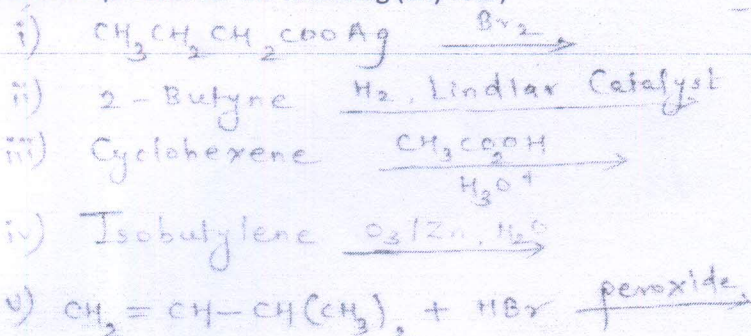 i) CH₃CH₂CH₂COOAg Br₂ →
ii) 2-Butyne H₂, Lindlar Catalyst →
iii) Cyclohexene CH₃CO₂OH →
H₃O⁺
iv) Isobutylene O₃/Zn, H₂O →
v) CH₂ = CH – CH(CH₃)₂ + HBr peroxide →